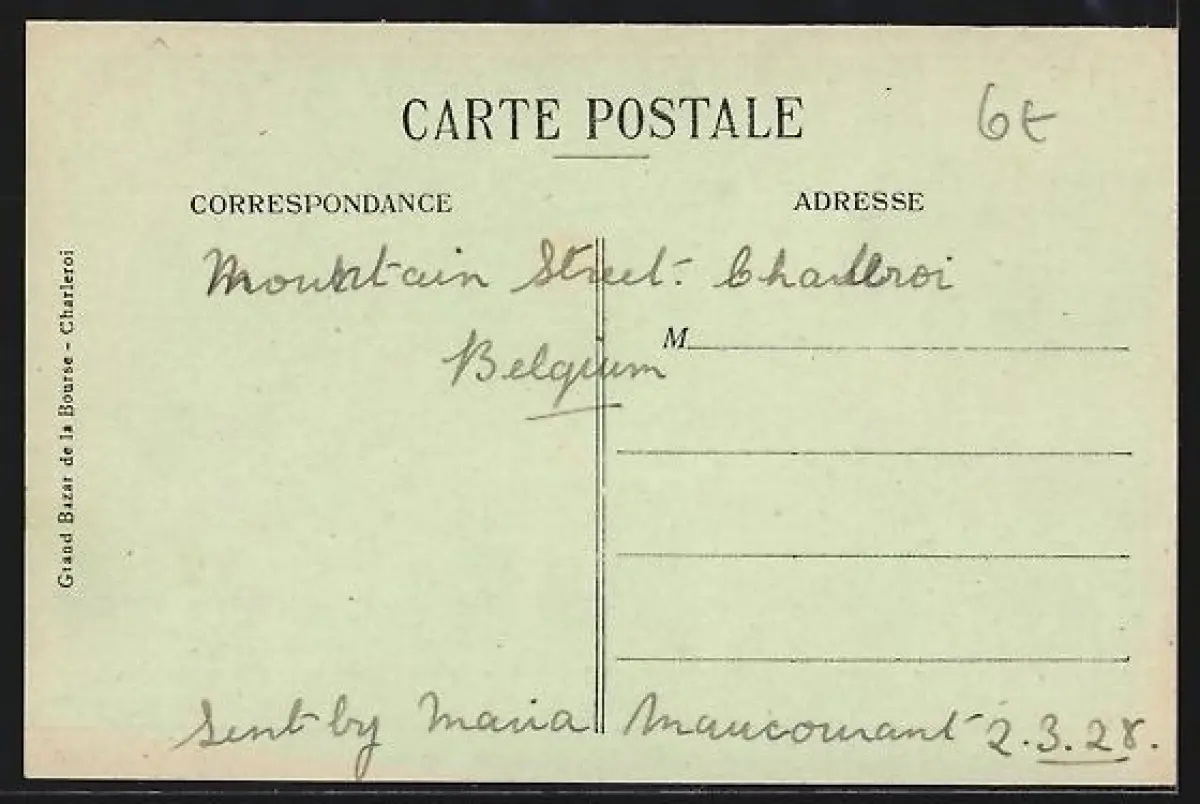 CARTE POSTALE
6t
CORRESPONDANCE
ADRESSE
Mountain Street. Charleroi
M
Belgium
Sent by Maria Maucourant 2.3.28.
Grand Bazar de la Bourse - Charleroi